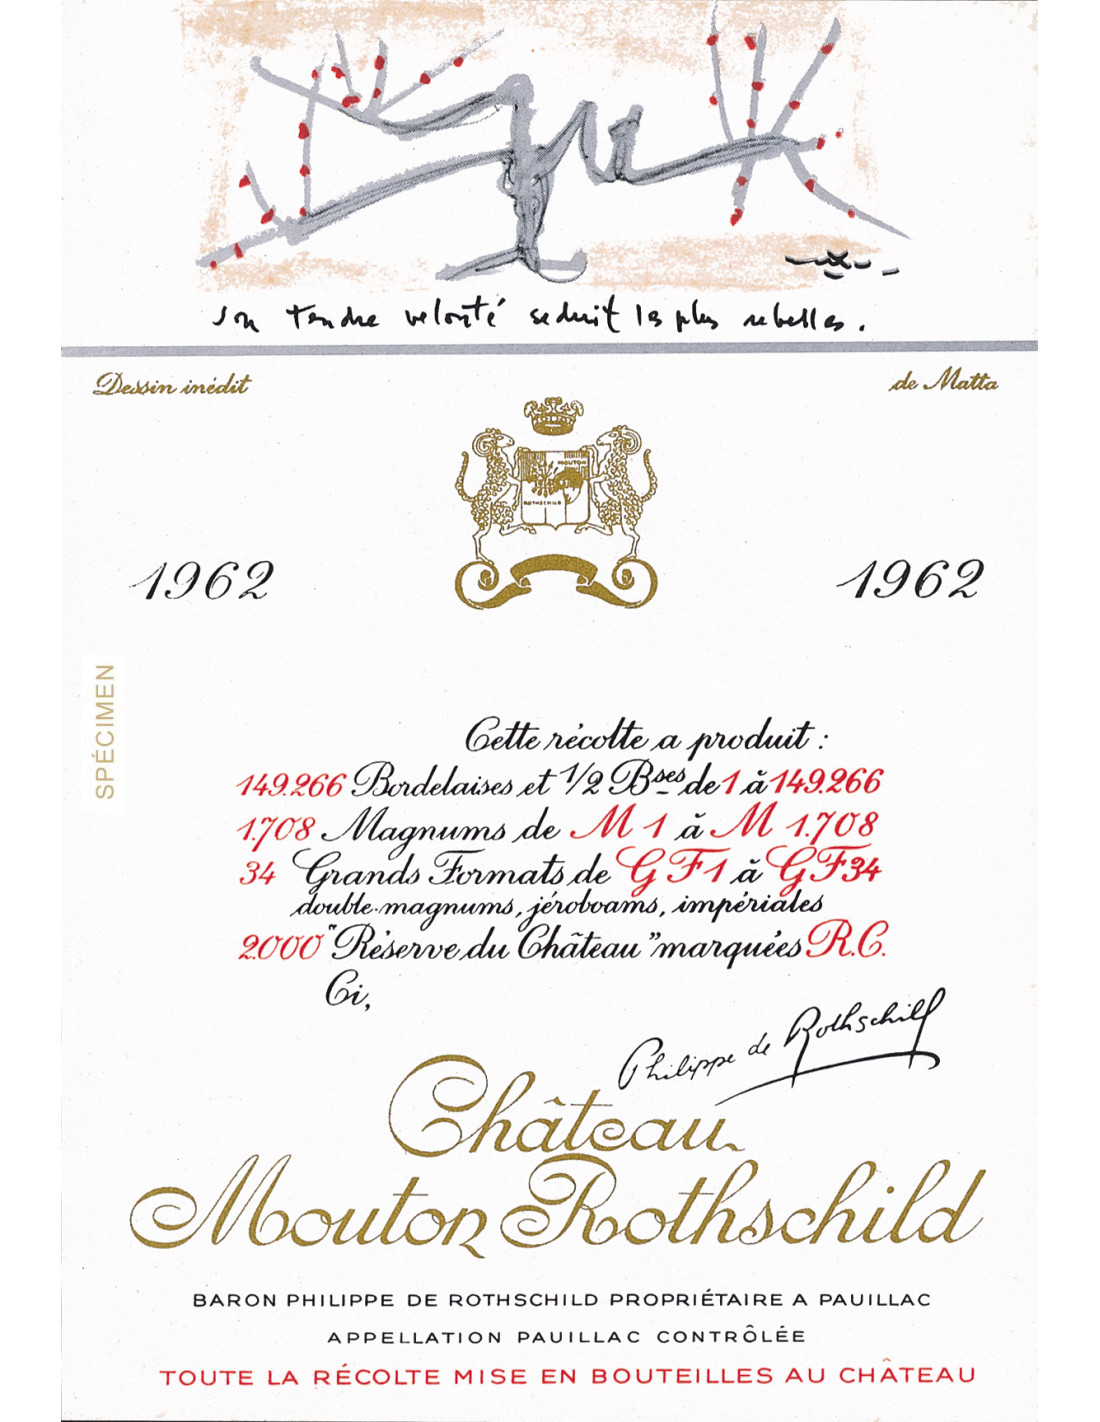 son tendre velouté séduit les plus rebelles.
Dessin inédit
de Matta
MOUTON
ROTHSCHILD
1962
1962
SPÉCIMEN
Cette récolte a produit :
149.266 Bordelaises et 1/2 Bses de 1 à 149.266
1.708 Magnums de M 1 à M 1.708
34 Grands Formats de G F 1 à G F 34
double-magnums, jéroboams, impériales
2.000 "Réserve du Château" marquées R.C.
Ci,
Philippe de Rothschild
Château
Mouton Rothschild
BARON PHILIPPE DE ROTHSCHILD PROPRIÉTAIRE A PAUILLAC
APPELLATION PAUILLAC CONTRÔLÉE
TOUTE LA RÉCOLTE MISE EN BOUTEILLES AU CHÂTEAU